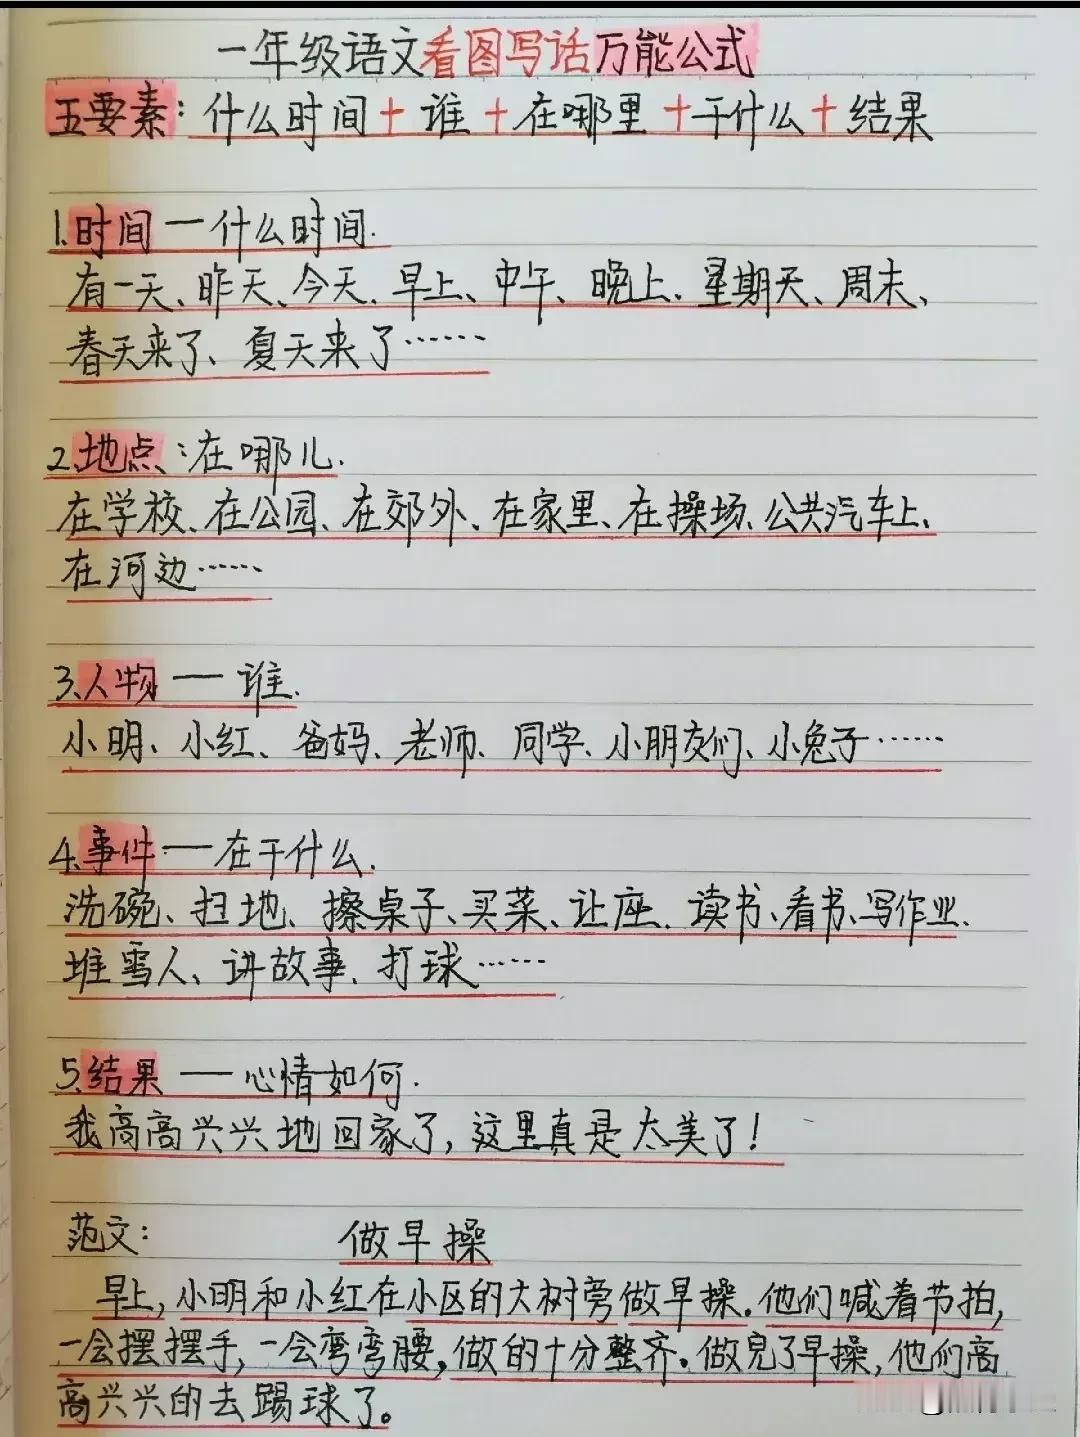 一年级语文看图写话万能公式
五要素:什么时间+谁+在哪里+干什么+结果
1.时间—什么时间.
有一天、昨天、今天、早上、中午、晚上、星期天、周末、
春天来了、夏天来了……
2.地点:在哪儿.
在学校、在公园、在郊外、在家里、在操场、公共汽车上、
在河边……
3.人物—谁.
小明、小红、爸妈、老师、同学、小朋友们、小兔子……
4.事件—在干什么.
洗碗、扫地、擦桌子、买菜、让座、读书、看书、写作业、
堆雪人、讲故事、打球……
5.结果—心情如何.
我高高兴兴地回家了,这里真是太美了!
范文: 做早操
早上,小明和小红在小区的大树旁做早操。他们喊着节拍,
一会摆摆手,一会弯弯腰,做的十分整齐。做完了早操,他们高
高兴兴的去踢球了。